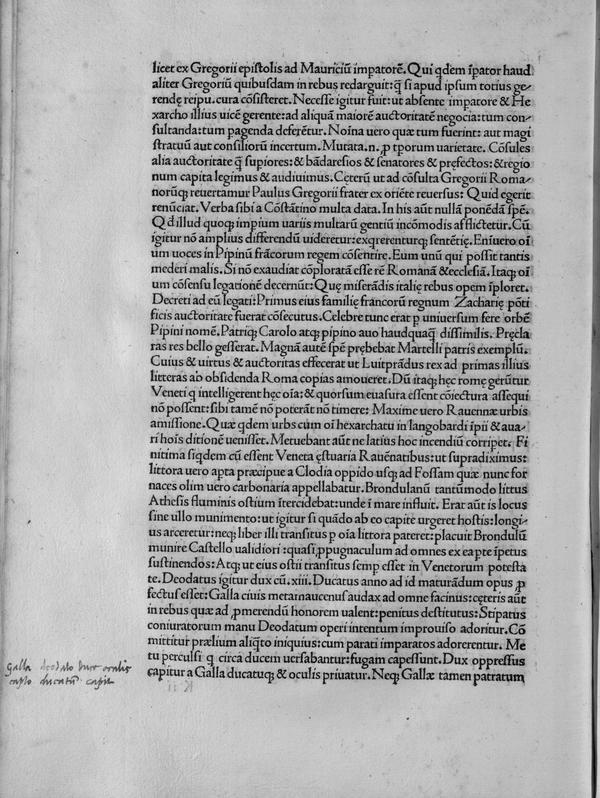 licet ex Gregorii epistolis ad Mauriciū impatorē. Qui qdem īpator haud
aliter Gregoriū quibusdam in rebus redarguit: q̄ si apud ipsum totius ge-
rendę reipu. cura cōsisteret. Necesse igitur fuit: ut absente impatore & He
xarcho illius uicē gerente: ad aliquā maiorē auctoritatē negocia: tum con-
sultanda: tum pagenda deferētur. Noīna uero quæ tum fuerint: aut magi
stratuū aut consiliorū incertum. Mutata. n. ꝓ tporum uarietate. Cōsules
alia auctoritate q̄ supiores: & bādaresios & senatores & pręfectos: & regio
num capita legimus & audiuimus. Ceterū ut ad cōsulta Gregorii Roma-
norūq; reuertamur Paulus Gregorii frater ex oriēte reuersus: Quid egerit
renūciat. Verba sibi a Cōstātino multa data. In his aūt nullā ponēdā spē.
Qd illud quoq; impium uariis multarū gentiū incōmodis afflictetur. Cū
igitur nō amplius differendū uideretur: exqrerenturq; sentētię. Eniuero oī
um uoces in Pipinū frācorum regem cōsentire. Eum unū qui possit tantis
mederi malis. Si nō exaudiat cōploratā esse rē Romanā & ecclesiā. Itaq; oī
um cōsensu legationē decernūt: Quę miserādis italię rebus opem īploret.
Decreti ad eū legati: Primus eius familię francorū regnum Zacharię pōti
ficis auctoritate fuerat cōsecutus. Celebre tunc erat p uniuersum fere orbē
Pipini nomē. Patriq; Carolo atq; pipino auo haudquaq̄ dissimilis. Pręcla
ras res bello gesserat. Magnā autē spē prębebat Martelli patris exemplū.
Cuius & uirtus & auctoritas effecerat ut Luitprādus rex ad primas illius
litteras ab obsidenda Roma copias amoueret. Dū itaq; hęc romę gerūtur
Veneti q intelligerent hęc oīa: & quorsum euasura essent cōiectura assequi
nō possent: sibi tamē nō poterāt nō timere: Maxime uero Rauennæ urbis
amissione. Quæ qdem urbs cum oī hexarchatu in langobardi īpii & aua-
ri hoīs ditionē uenisset. Metuebant aūt ne latius hoc incēdiū corripet. Fi
nitima siqdem cū essent Veneta ęstuaria Rauēnatibus: ut supradiximus:
littora uero apta præcipue a Clodia oppido usq; ad Fossam quæ nunc for
naces olim uero carbonaria appellabatur. Brondulanū tantūmodo littus
Athesis fluminis ostium ītercidebat: unde ī mare influit. Erat aūt is locus
sine ullo munimento: ut igitur si quādo ab eo capite urgeret hostis: longi-
us arceretur: neq; liber illi transitus p oīa littora pateret: placuit Brondulū
munire Castello ualidiori: quasi ꝓpugnaculum ad omnes ex ea pte īpetus
sustinendos: Atq; ut eius ostii transitus semp esset in Venetorum potesta
te. Deodatus igitur dux cū. xiii. Ducatus anno ad id maturādum opus ꝓ
fectus esset: Galla ciuis metamaucensis audax ad omne facinus: cęteris aūt
in rebus quæ ad ꝓmerendū honorem ualent: penitus destitutus: Stipatus
coniuratorum manu Deodatum operi intentum improuiso adoritur. Cō
mittitur prælium aliqto iniquius: cum parati imparatos adorerentur. Me
tu perculsi q circa ducem uersabantur: fugam capessunt. Dux oppressus
capitur a Galla ducatuq; & oculis priuatur. Neq; Gallæ tamen patratum
Galla deodato duce oculis
capto ducatū capit